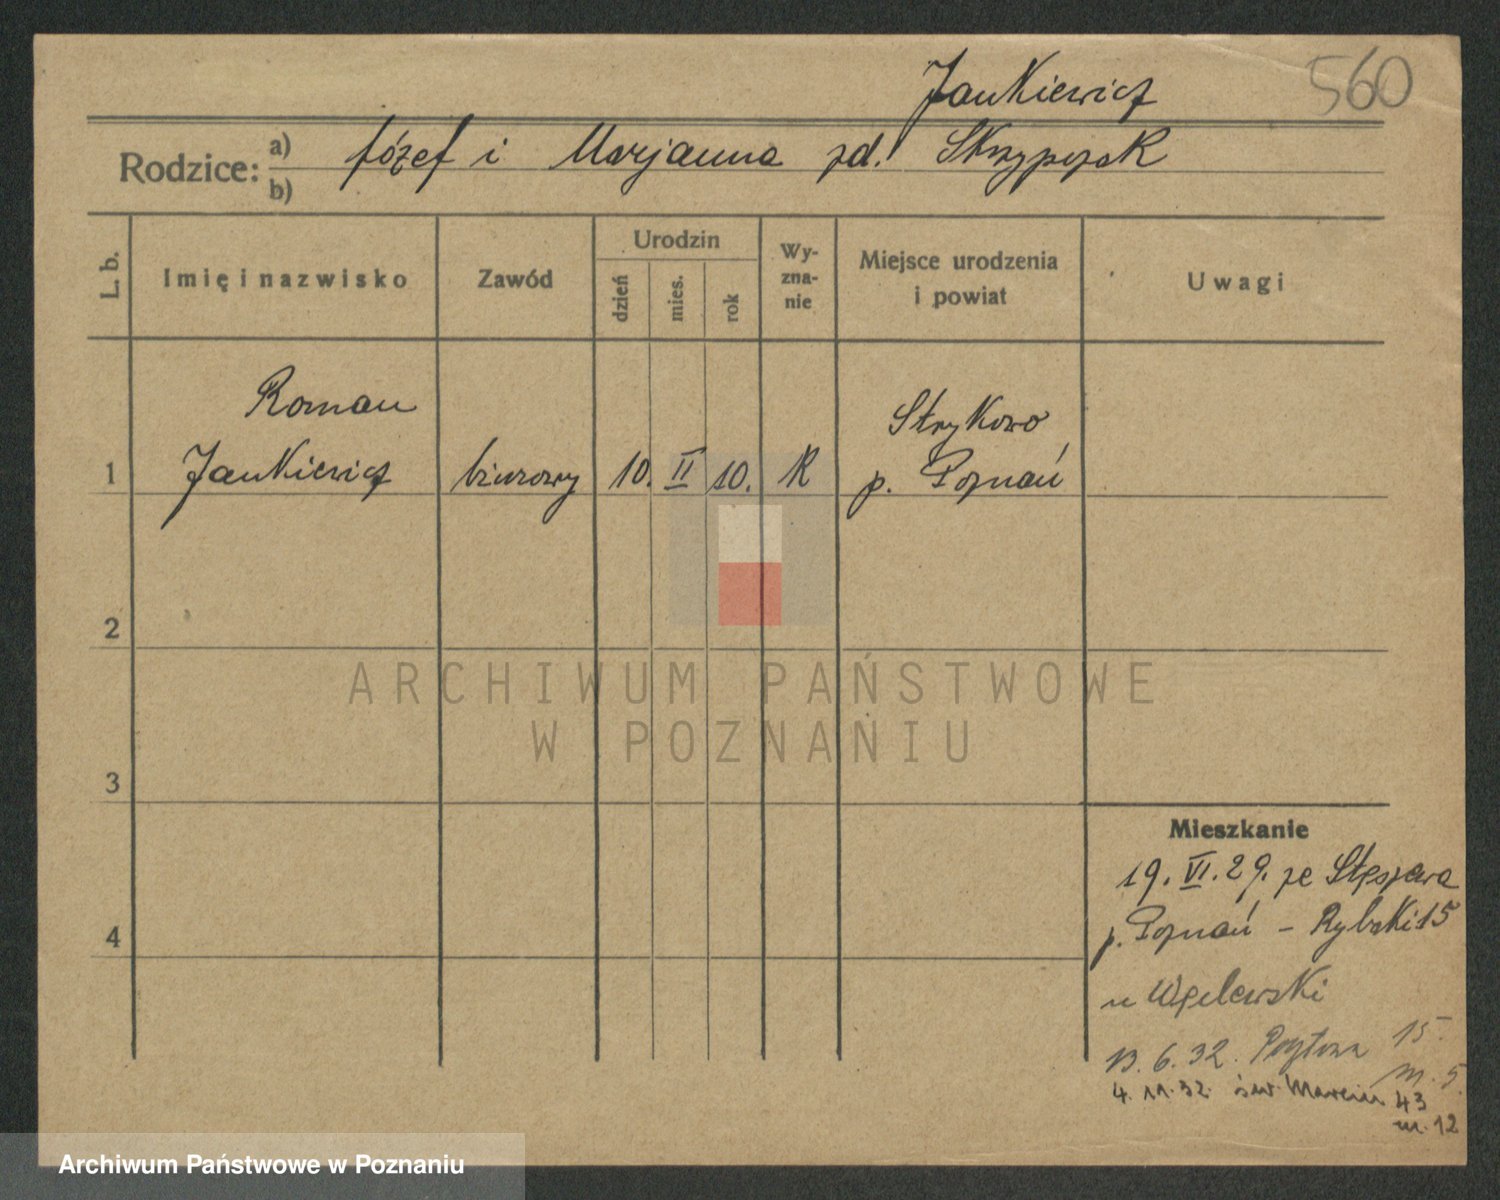 Jankiewicz 560
Rodzice: a) Józef i Marjanna zd. Skrzypczak
b)
L. b.
Imię i nazwisko
Zawód
Urodzin
dzień
mies.
rok
Wy-
zna-
nie
Miejsce urodzenia
i powiat
Uwagi
Roman
Jankiewicz
Strykowo
1 biurowy 10. II 10. K p. Poznań
2
3
4
Mieszkanie
19. VI. 29. ze Stęszewa
p. Poznań – Rybaki 15
u Węclewski
13. 6. 32. Pocztowa 15
m. 5.
4. 11. 32. św. Marcin 43
m. 12
ARCHIWUM PAŃSTWOWE
W POZNANIU
Archiwum Państwowe w Poznaniu